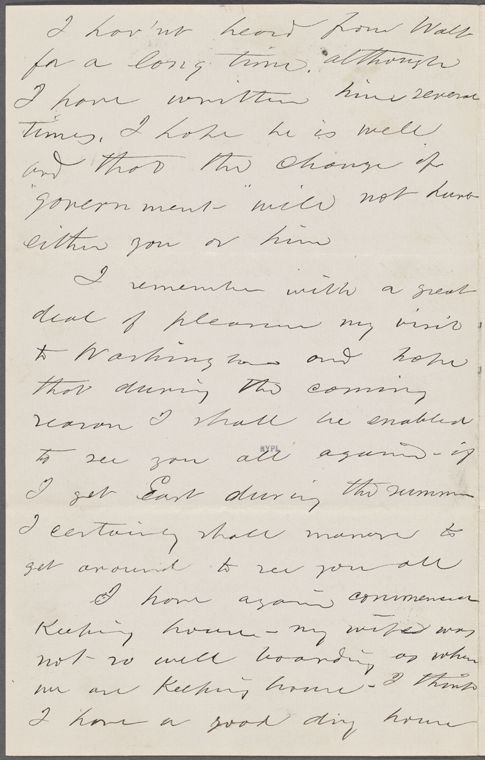 I hav'nt heard from Walt
for a long time. although
I have written him several
times. I hope he is well
and that the change of
"government" will not hurt
either you or him
I remember with a great
deal of pleasure my visit
to Washington and hope
that during the coming
season I shall be enabled
to see you all again - if
NYPL
I get East during the summer
I certainly shall manage to
get around to see you all
I have again commenced
Keeping house - my wife was
not so well boarding as when
we are Keeping house - I think
I have a good dry house